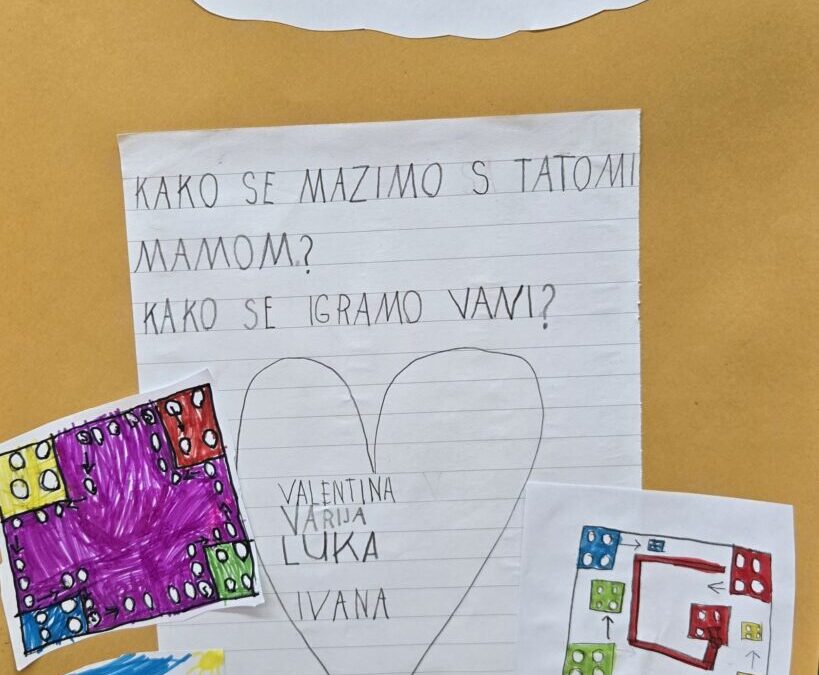 KAKO SE MAZIMO S TATOMI
MAMOM?
KAKO SE IGRAMO VANI?
VALENTINA
VARIJA
LUKA
IVANA